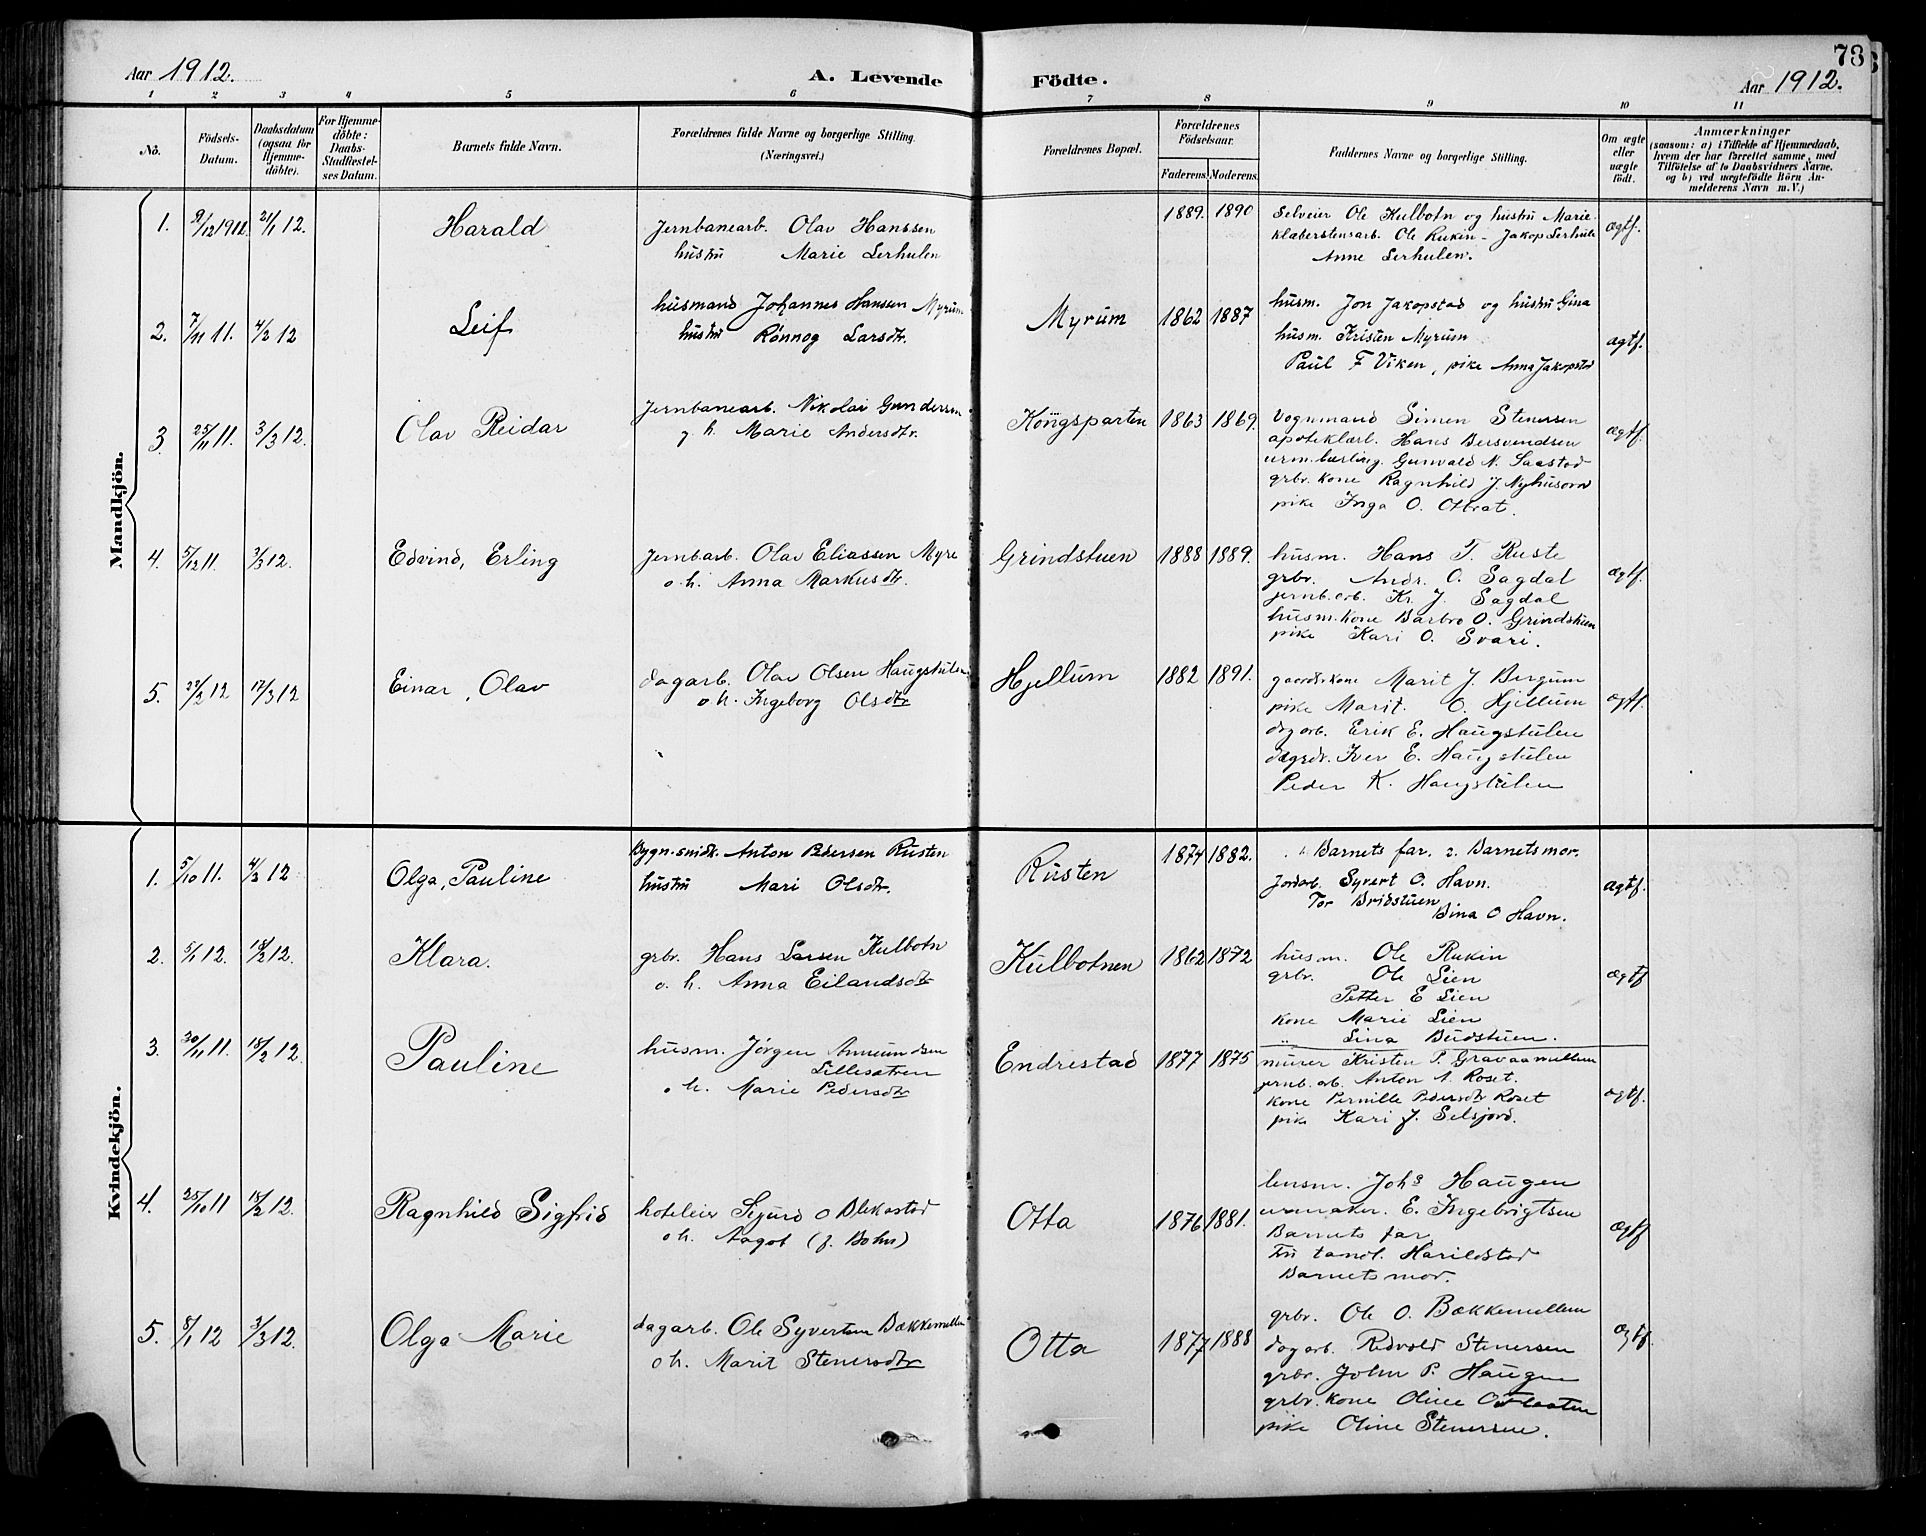 73
Aar 1912. A. Levende Födte. Aar 1912.
1 2 3 4 5 6 7 8 9 10 11
No. Födsels-Datum. Daabsdatum (ogsaa för Hjemme-döbte). For Hjemme-döbte: Daabs-Stadfæstel-ses Datum. Barnets fulde Navn. Forældrenes fulde Navne og borgerlige Stilling. (Næringsvei.) Forældrenes Bopæl. Forældrenes Födselsaar. Faderens. Moderens. Faddernes Navne og borgerlige Stilling. Om ægte eller uægte födt. Anmærkninger (saasom: a) i Tilfælde af Hjemmedaab, hvem der har forrettet samme, med Tilföielse af to Daabsvidners Navne, og b) ved uægtefödte Börn An-melderens Navn m. V.)
Mandkjön.
1. 9/12 1911. 21/1 12. Harald Jernbanearb. Olav Hanssen 1889. 1890 Selveier Ole Kulbotn og hustru Marie ægtf.
hustru Marie Lerhulen klæberstensarb. Ole Rukin - Jakop Lerhule
Anne Lerhulen.
2. 7/11 11. 4/2 12 Leif husmand Johannes Hanssen Myrum Myrum 1862 1887 husm. Jon Jakopstad og hustru Gina ægtf.
hustru Rønnog Larsdtr. husm. Kristen Myrum
Paul F Viken, pike Anna Jakopstad
3 25/11 11. 3/3 12. Olav Reidar Jernbanearb. Nikolai Gundersen Kongsparten 1863 1869. Vognmand Simen Stenersen ægtf.
g. h. Marie Andersdtr. apoteklærl. Hans Bersvendsen
urm. lærling. Gunvald N. Saastad
grbr. kone Ragnhild J. Nyhusorn
pike Inga O. Ottrat.
4. 5/12 11. 3/3 12. Edvind, Erling Jernbarb. Olav Eliassen Myre Grindstuen 1888 1889. husm. Hans T. Ruste ægtf.
o. h. Anna Markusdtr. grbr. Andr. O. Sagdal
jernb. arb. Kr. J. Sagdal
husm. kone Barbro O. Grindstuen
pike Kari O. Svari.
5. 27/2 12 17/3 12 Einar, Olav dagarb. Olav Olsen Haugstulen Hjellum 1882 1891. gaardbr. kone Marit J. Bergum ægtf.
o h. Ingeborg Olsdtr pike Marit. O. Hjellum
dagarb. Erik E. Haugstulen
Iver E. Haugstulen
Peder K. Haugstulen
Kvindekjön.
1. 5/10 11. 4/2 12 Olga, Pauline Bygn.snidk. Anton Pedersen Rusten Rusten 1874 1882. 1. Barnets far. 2. Barnets mor. ægtf.
hustru Mari Olsdtr. Jordarb. Syvert O. Havn.
Tor Bridstuen
Dina O Havn.
2. 5/1 12. 18/2 12. Klara. grbr. Hans Larsen Kulbotn Kulbotnen 1862 1872 husm. Ole Rukin ægtf
o. h. Anna Eilandsdtr grbr. Ole Lien
Petter E Lien
kone Marie Lien
" Lina Budstuen.
3. 30/11 11. 18/2 12. Pauline husm. Jörgen Amundsen Endrestad 1877 1875 murer Kristen P. Gravaamellem ægtf.
Lillesætren jernb. arb. Anton A. Roset.
o h. Marie Pedersdtr kone Pernille Pedersdtr Roset
pike Kari J. Selsjord.
4. 25/10 11 18/2 12. Ragnhild Sigfrid hoteleier Sigurd O Blekastad Otta 1876 1881. lensm. Johs Haugen ægtf
o h. Aagot (f. Bohn) urmaker. E. Ingebrigtsen
Barnets far
Fru tandl. Harildstad
Barnets mor.
5. 8/1 12 3/3 12. Olga Marie dagarb. Ole Syvertsen Bækkemellem Otta 1877 1888 grbr. Ole O. Bækkemellem ægtf.
o h. Marit Stenersdtr dagarb. Redvald Stenersen
grbr. John P. Haugen
grbr. kone Oline
pike Oline Stenersen.